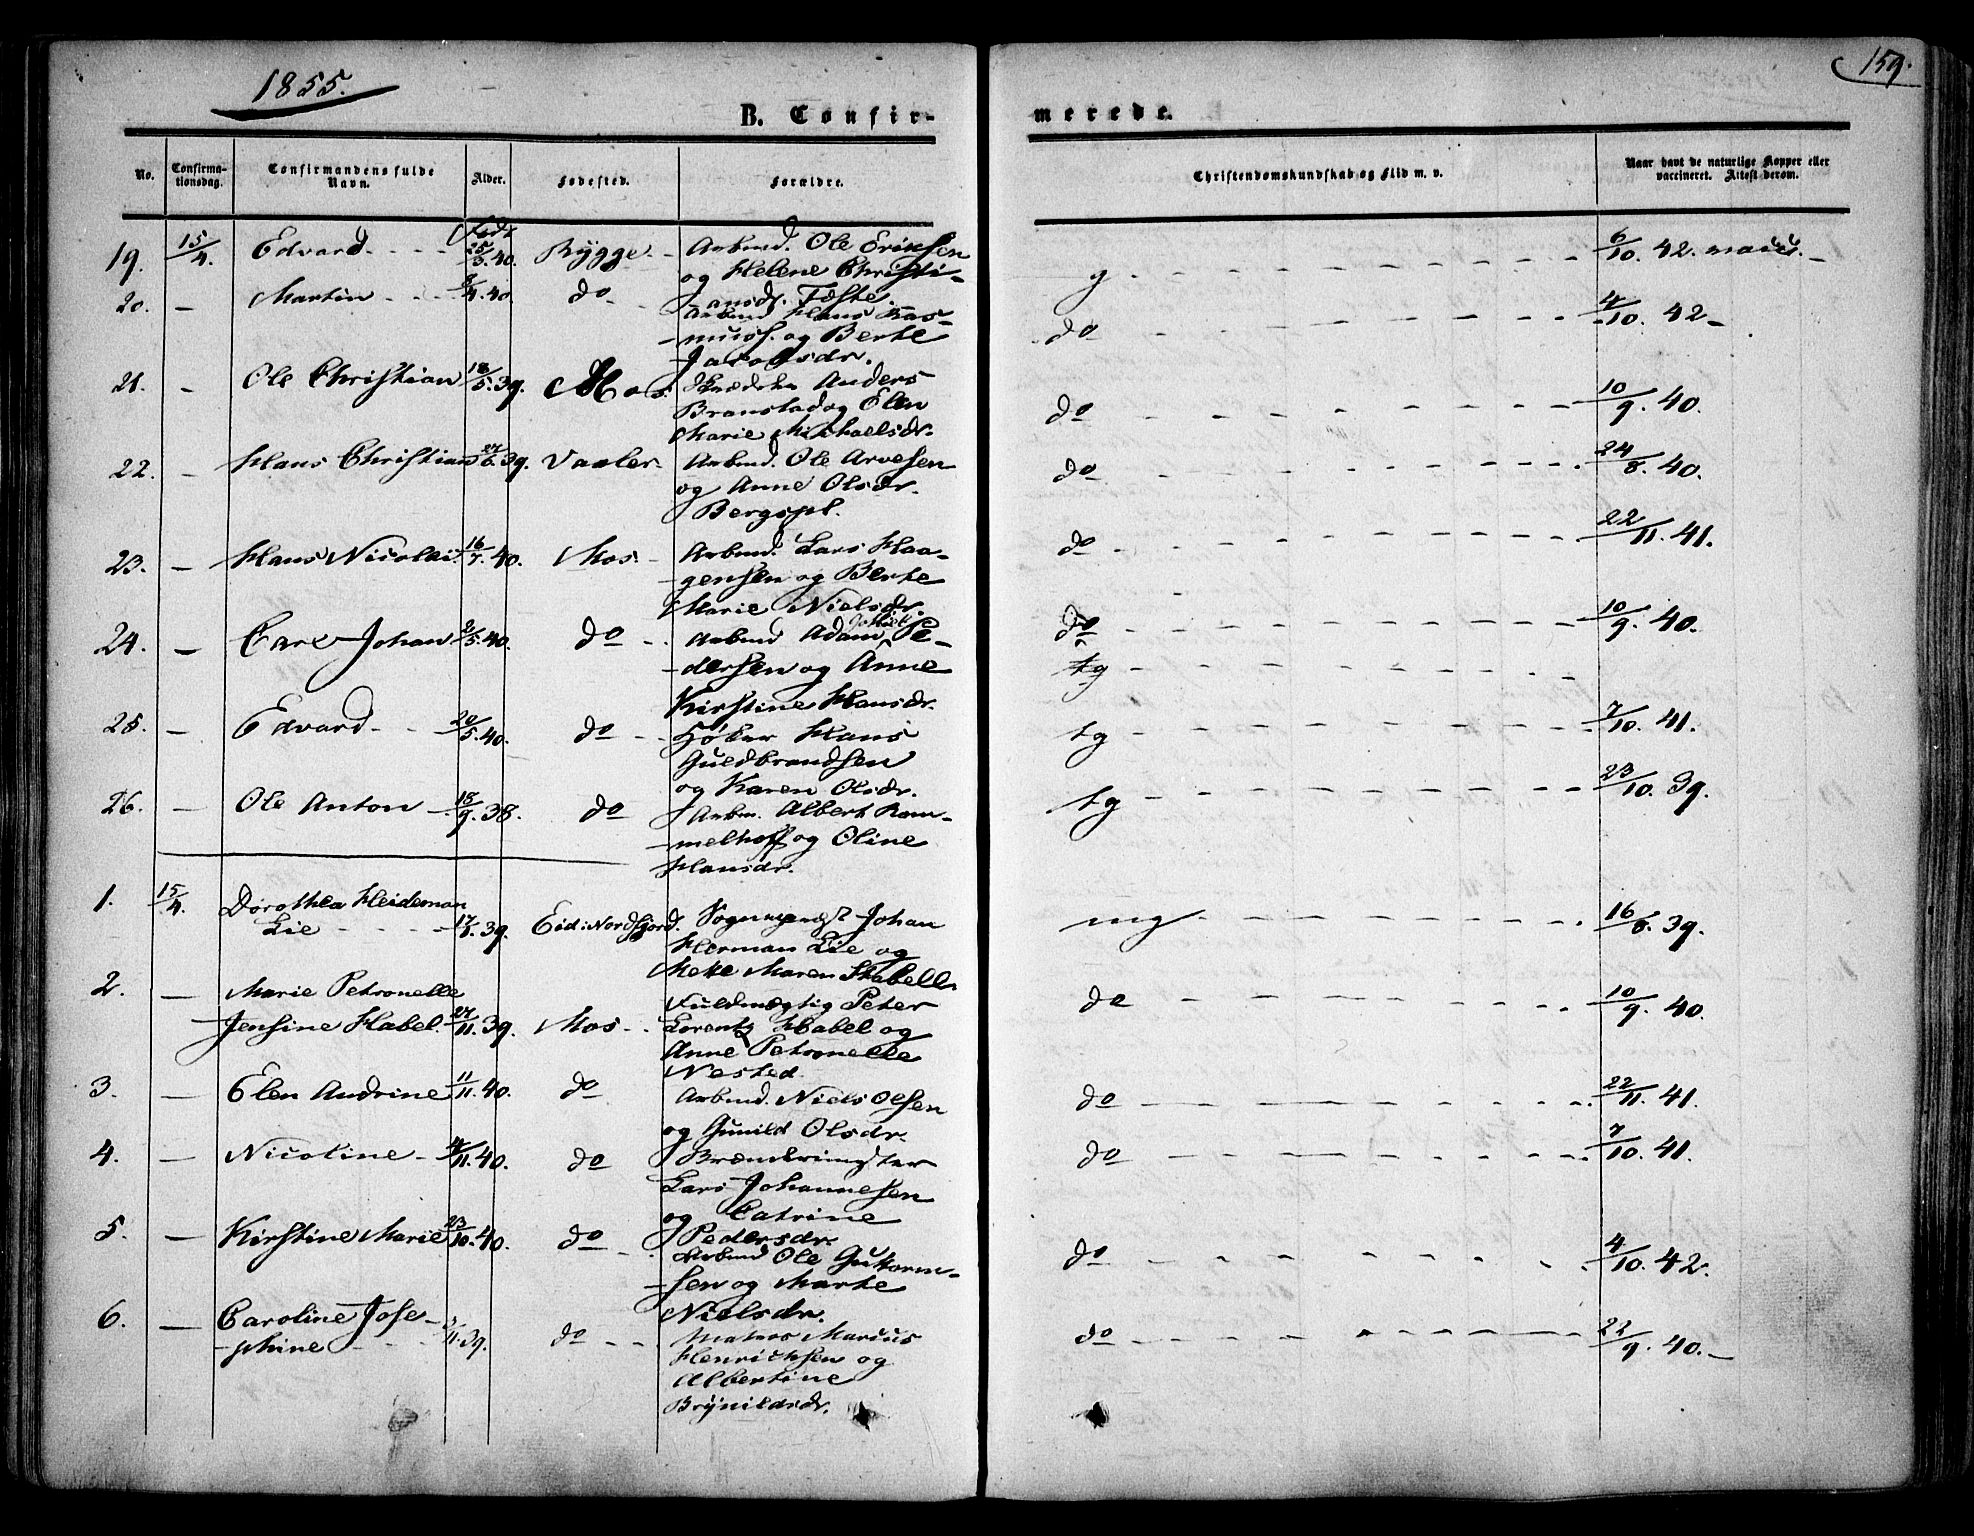 1855.
159.
B. Confir-
merede.
No.
Confirma-
tionsdag.
Confirmandens fulde
Navn.
Alder.
Fødested.
Forældre.
Christendomskundskab og Flid m. v.
Naar havt de naturlige Kopper eller
vaccineret. Attest derom.
Født
19. 15/4. Edvard - - - 25/3.40. Rygge - Arbmd. Ole Eriksen
og Helene Christi-
ansdr. Fæste. g 6/10. 42.
20. - Martin - - - 8/4.40. do - Arbmd Hans Ras-
muss. og Berte
Jacobsdr. do 4/10. 42 -
21. - Ole Christian 18/5.39. Mos. Anders
Branstad og Elen
Marie Mikkaelsdr. do 10/9. 40.
22. - Hans Christian 27/6.39. Vaaler - Arbmd. Ole Arvesen
og Anne Olsdr.
Bergspl. do 24/8. 40.
23. - Hans Nicolai. 16/7.40. Mos. - Arbmd. Lars Haa-
gensen og Berte
Marie Nielsdr. do 22/11. 41.
24. - Carl Johan 2/5.40. do - - Arbmd Adam Pe-
dersen og Anne
Kirstine Hansdr. do 10/9. 40.
tg
25. - Edvard - - 20/5.40. do - - Høker Hans
Guldbrandsen
og Karen Olsdr. tg 7/10. 41.
26. - Ole Anton - 18/9.38. do Arbm. Albert Ram-
melhoff og Oline
Hansdr. tg 23/10. 39.
1. 15/4. Dorothea Heideman
Lie - - - - 17/5.39. Eid i Nordfjord. Sognepræst Johan
Herman Lie og
Mette Maren Stabell. mg 16/8. 39.
2. - Marie Petronelle
Jensine Habel. 27/11.39. Mos - - Fuldmægtig Peter
Lorentz Habel og
Anne Petronelle
Nested. do 10/9. 40.
3. - Elen Andrine 11/11.40. do Arbmd. Niels Olsen
og Gunild Olsdr. do 22/11. 41.
4. - Nicoline - 4/11.40. do
Lars Johannesen
og Catrine
Pedersdr. do 7/10. 41.
5. - Kirstine Marie 23/10.40. do - Arbmd Ole Guttorm-
sen og Marte
Nielsdr. do 4/10. 42.
6. - Caroline Jose-
phine - - /11.39. do - - Matros Marcus
Henrichsen og
Albertine
Brynildsdr. do 22/9. 40. -